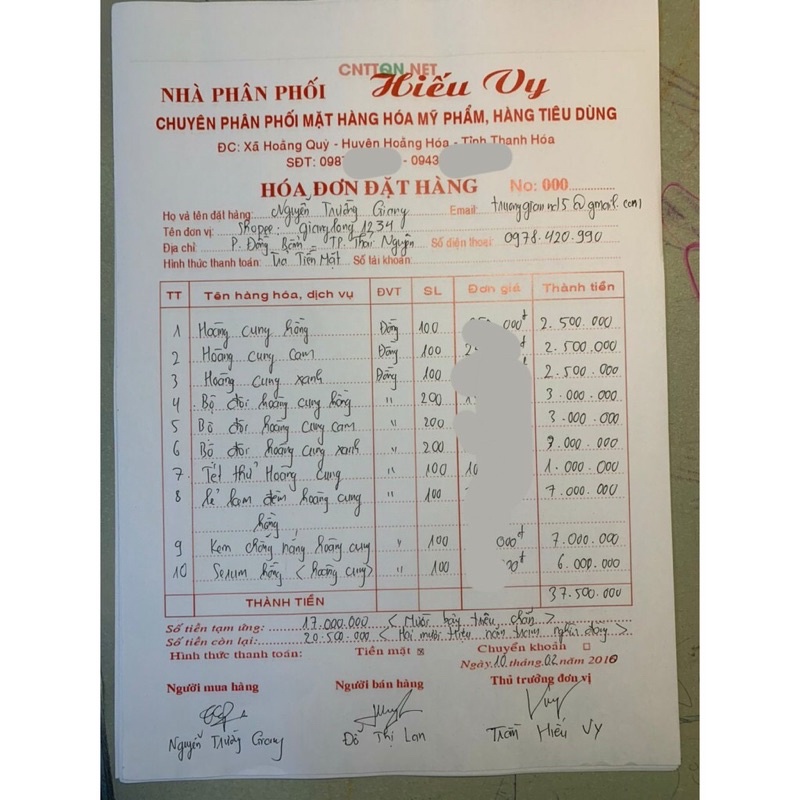 CNTTQN.NET
NHÀ PHÂN PHỐI Hiếu Vy
CHUYÊN PHÂN PHỐI MẶT HÀNG HÓA MỸ PHẨM, HÀNG TIÊU DÙNG
ĐC: Xã Hoằng Quỳ - Huyện Hoằng Hóa - Tỉnh Thanh Hóa
SĐT: 098 - 0943
HÓA ĐƠN ĐẶT HÀNG No: 000
Họ và tên đặt hàng: Nguyễn Trường Giang Email:
Tên đơn vị: Shopee: gianglong1234
Địa chỉ: P. Đồng Bẩm TP. Thái Nguyên Số điện thoại: 0978.420.990
Hình thức thanh toán: Trả Tiền Mặt Số tài khoản:
TT Tên hàng hóa, dịch vụ ĐVT SL Đơn giá Thành tiền
1 Hoàng cung hồng Đồng 100 000đ 2.500.000
2 Hoàng cung cam Đồng 100 2.500.000
3 Hoàng cung xanh Đồng 100 2.500.000
4 Bộ đôi hoàng cung hồng " 200 3.000.000
5 Bộ đôi hoàng cung cam " 200 3.000.000
6 Bộ đôi hoàng cung xanh " 200 3.000.000
7 Tét thử Hoàng cung " 100 10 1.000.000
8 kem đêm hoàng cung " 100 7.000.000
hồng
9 Kem chống nắng hoàng cung " 100 000đ 7.000.000
10 Serum hồng <hoàng cung> " 100 6.000.000
THÀNH TIỀN 37.500.000
Số tiền tạm ứng: 17.000.000 < Mười bảy triệu chẵn >
Số tiền còn lại: 20.500.000 < Hai mươi triệu năm trăm nghìn đồng >
Hình thức thanh toán: Tiền mặt ☒ Chuyển khoản ☐
Ngày 10 tháng 02 năm 201
Người mua hàng Người bán hàng Thủ trưởng đơn vị
Nguyễn Trường Giang Đỗ Thị Lan Trần Hiếu Vy